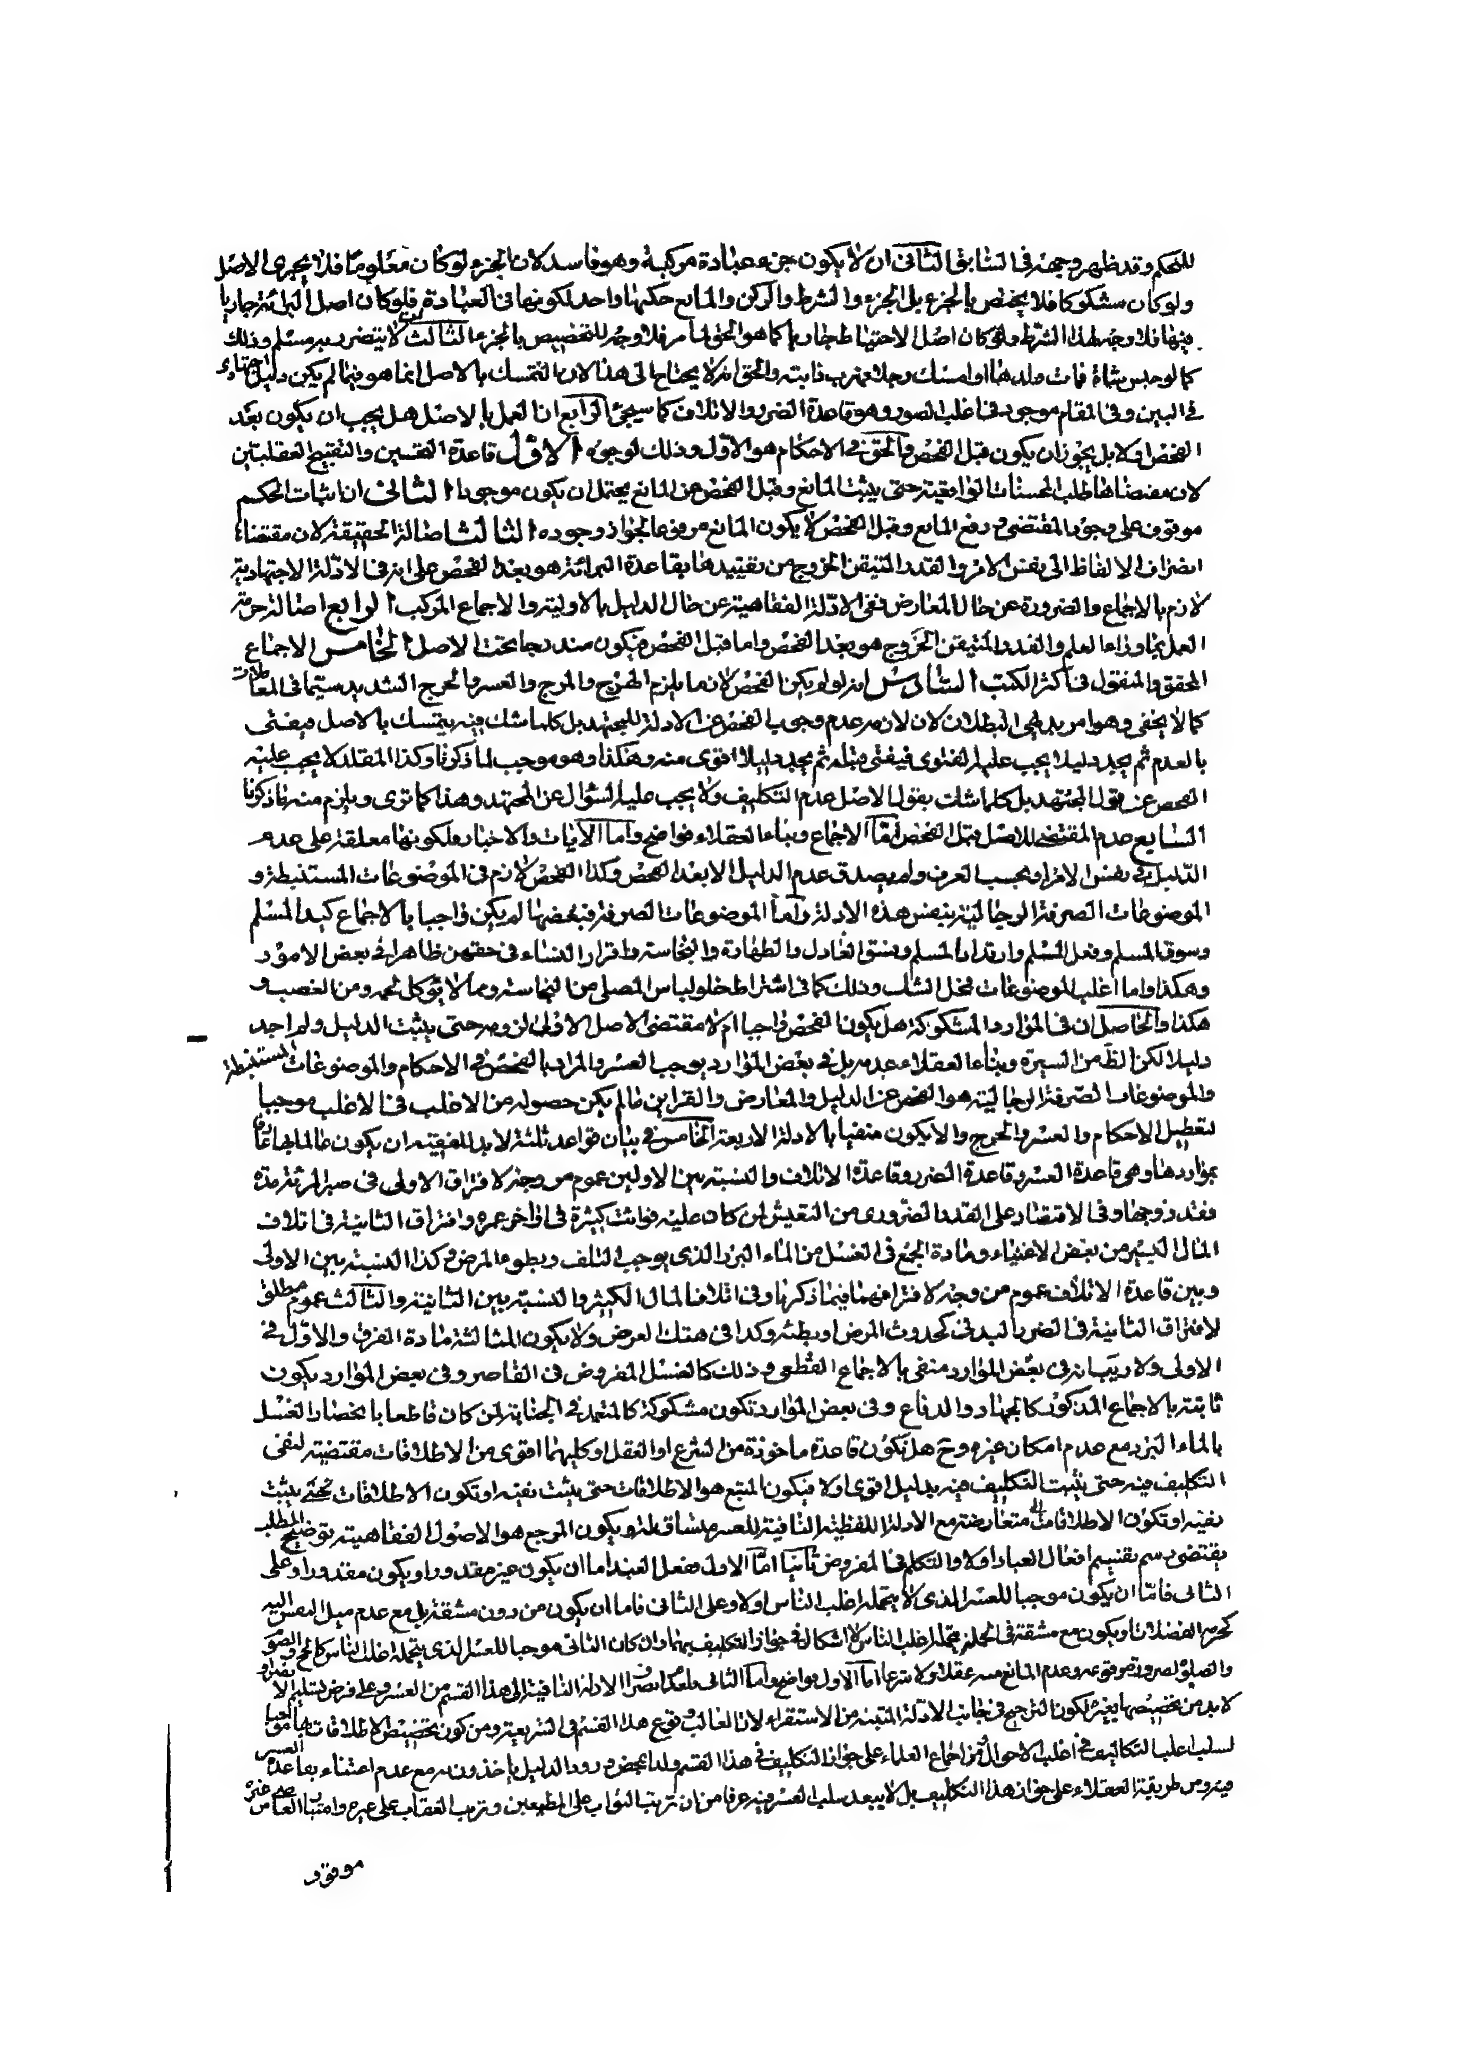 للتحكم وقد ظهر وجهه فى السّابق الثانى ان لا يكون جزء عبادة مركبة وهو فاسد لان الجزء لو كان معلوما فلا يجرى الاصل
ولو كان مشكوكا فلا يختص بالجزء بل الجزء والشرط والركن والمانع حكمها واحد لكونها فى العبادة فلو كان اصل البرائة جاريا
فيها فلا وجه لهذا الشرط ولو كان اصل الاحتياط جاريا كما هو الحق لما مر فلا وجه للتخصيص بالجزء الثالث ان لا يتضرر به مسلم وذلك
كما لو حبس شاة فمات ولدها او امسك رجلا فهرب دابته والحق انه لا يحتاج الى هذا لان التمسك بالاصل انما هو فيما لم يكن دليل اجتهادى
فى البين وفى المقام موجود فى اغلب الصور وهو قاعدة الضرر والاتلاف كما سيجئ الرابع ان العمل بالاصل هل يجب ان يكون بعد
الفحص او لا بل يجوز ان يكون قبل الفحص والحق فى الاحكام هو الاول وذلك لوجوه الاوّل قاعدة التحسين والتقبيح العقليتين
لان مقتضاها طلب المحسنات الواقعية حتى يثبت المانع وقبل الفحص عن المانع يحتمل ان يكون موجودا الثانى ان اثبات الحكم
موقوف على وجود المقتضى ورفع المانع وقبل الفحص لا يكون المانع مرفوعا لجواز وجوده الثالث اصالة الحقيقة لان مقتضاه
انصراف الالفاظ الى نفس الامر والقدر المتيقن الخروج من تقييدها بقاعدة البرائة هو بعد الفحص على انه فى الادلّة الاجتهادية
لازم بالاجماع والضرورة عن حال المعارض ففى الادلة الفقاهية عن حال الدليل بالاولية والاجماع المركب الرابع اصالة حرمة
العمل بما وراء العلم والقدر المتيقن الخروج هو بعد الفحص واما قبل الفحص فيكون مندرجا تحت الاصل الخامس الاجماع
المحقق والمنقول فى اكثر الكتب السّادس انه لو لم يكن الفحص لازما يلزم الهرج والمرج والعسر والحرج الشديد سيّما فى المعاملات
كما لا يخفى وهو امر بديهى البطلان لان لازمه عدم وجوب الفحص عن الادلة للمجتهد بل كلما شك فيه يتمسك بالاصل فيفتى
بالعدم ثم يجد دليلا يجب عليه الفتوى فيفتى مثله ثم يجد دليلا اقوى منه وهكذا وهو موجب لما ذكرنا وكذا المقلد لا يجب عليه
الفحص عن قول المجتهد بل كلما شك يقول الاصل عدم التكليف ولا يجب عليه السّؤال عن المجتهد وهذا كما ترى ويلزم منه ما ذكرنا
السّابع عدم المقتضى للاصل قبل الفحص امّا الاجماع وبناء العقلاء فواضح واما الايات والاخبار فلكونها معلقة على عدم
الدّليل فى نفس الامر او بحسب العرف ولم يصدق عدم الدليل الا بعد الفحص وكذا الفحص لازم فى الموضوعات المستنبطة و
الموضوعات الصرفة الرجالية بنفس هذه الادلة وامّا الموضوعات الصرفة فبعضها لم يكن واجبا بالاجماع كيد المسلم
وسوق المسلم وفعل المسلم وارتداد المسلم وفسق العادل والطهارة والنجاسة واقرار النساء فى حقهن ظاهرا فى بعض الامور
وهكذا واما اغلب الموضوعات فمحل الشك وذلك كما فى اشتراط خلو لباس المصلى من النجاسة ومما لا يؤكل لحمه ومن الغصب و
هكذا والحاصل ان فى الموارد المشكوكة هل يكون الفحص واجبا ام لا مقتضى الاصل الاولى لزومه حتى يثبت الدليل ولم اجد
دليلا لكن الظّ من السيرة وبناء العقلاء عدمه بل فى بعض الموارد يوجب العسر والمراد بالفحص فى الاحكام والموضوعات المستنبطة
والموضوعات الصّرفة الرجالية هو الفحص عن الدليل والمعارض والقراين ما لم يكن حصوله من الاغلب فى الاغلب موجبا
لتعطيل الاحكام والعسر والحرج والا يكون منفيا بالادلة الاربعة الخامس فى بيان قواعد ثلثة لابد للفقيه ان يكون عالما بها عارفا
بمواردها وهى قاعدة العسر وقاعدة الضرر وقاعدة الاتلاف والنسبة بين الاولين عموم من وجه لافتراق الاولى فى صبر المرئة مدة
فقد زوجها وفى الاقتصار على القدر الضّرورى من التعيش لمن كان عليه فوائت كثيرة فى اواخر عمره وافتراق الثانية فى اتلاف
المال اليسير من بعض الاغنياء ومادة الجمع فى الغسل من الماء البرد الذى يوجب التلف وبطوء المرض وكذا النسبة بين الاولى
وبين قاعدة الاتلاف عموم من وجه لافتراقهما فيما ذكرنا وفى اتلاف المال الكثير والنسبة بين الثانية والثالث عموم مطلق
لافتراق الثانية فى الضرر البدنى كحدوث المرض او بطئه وكذا فى هتك العرض ولا يكون المثالثة مادة الفرق والاوّل فى
الاولى ولا ريب انه فى بعض الموارد منفى بالاجماع القطعى وذلك كالغسل المفروض فى القاصر وفى بعض الموارد يكون
ثابتة بالاجماع المذكور كالجهاد والدفاع وفى بعض الموارد تكون مشكوكة كالمتعمد فى الجنابة لمن كان قاطعا بانحصار الغسل
بالماء البرد مع عدم امكان غيره وح هل تكون قاعدة ماخوذة من الشرع او العقل او كليهما اقوى من الاطلاقات مقتضية لنفى
التكليف فيه حتى يثبت التكليف فيه بدليل اقوى او لا فيكون المتبع هو الاطلاقات حتى يثبت نفيه او تكون الاطلاقات حتى يثبت
نفيه او تكون الاطلاقات متعارضة مع الادلة اللفظية النافية للعسر متساقطة ويكون المرجع هو الاصول الفقاهية توضيح المطلب
يقتضى رسم تقسيم افعال العباد اولا والتكلم فى المفروض ثانيا امّا الاول ففعل العبد اما ان يكون غير مقدور او يكون مقدورا وعلى
الثانى فامّا ان يكون موجبا للعسر الذى لا يتحمله اغلب الناس او لا وعلى الثانى فاما ان يكون من دون مشقة بل مع عدم ميل النفس اليه
او يكون مع مشقة فى الجملة يتحمله اغلب الناس لا اشكال فى جواز التكليف بهما وان كان الثانى موجبا للعسر الذى يتحمله اغلب الناس كالحج والصوم
وعدم المانع منه عقلا ولا شرعا امّا الاول فواضح وامّا الثانى فلعدم انصراف الادلة النافية الى هذا القسم من العسر وعلى فرض تسليم الانصراف
لابد من تخصيصها بغيره لكون الترجيح فى جانب الادلّة المثبتة من الاستقراء لان الغالب وقوع هذا القسم فى الشريعة ومن كون تخصيص الاطلاقات بها موجبا
لسلب اغلب التكاليف فى اغلب الاحوال ومن اجماع العلماء على جواز التكليف فى هذا القسم ولذا بمحض ورود الدليل ياخذونه مع عدم اعتناء بقاعدة العسر
فيه ومن طريقة العقلاء على جواز هذا التكليف بل لا يبعد سلب العسر فيه عرفا من ان ترتب الثواب على المطيعين وترتب العقاب على غيره
موقوف